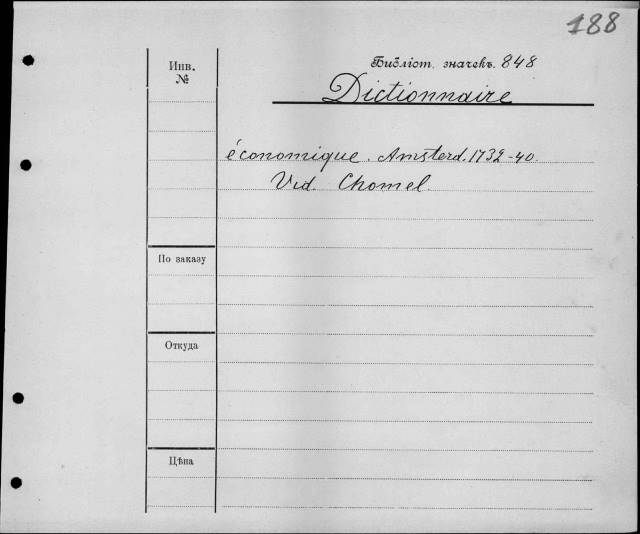 188
Инв. №
Библіот. значекъ. 848
Dictionnaire
économique. Amsterd. 1732-40.
Vid. Chomel.
По заказу
Откуда
Цѣна